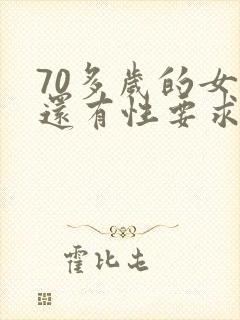 70多歲的女
還有性要求
霍比屯